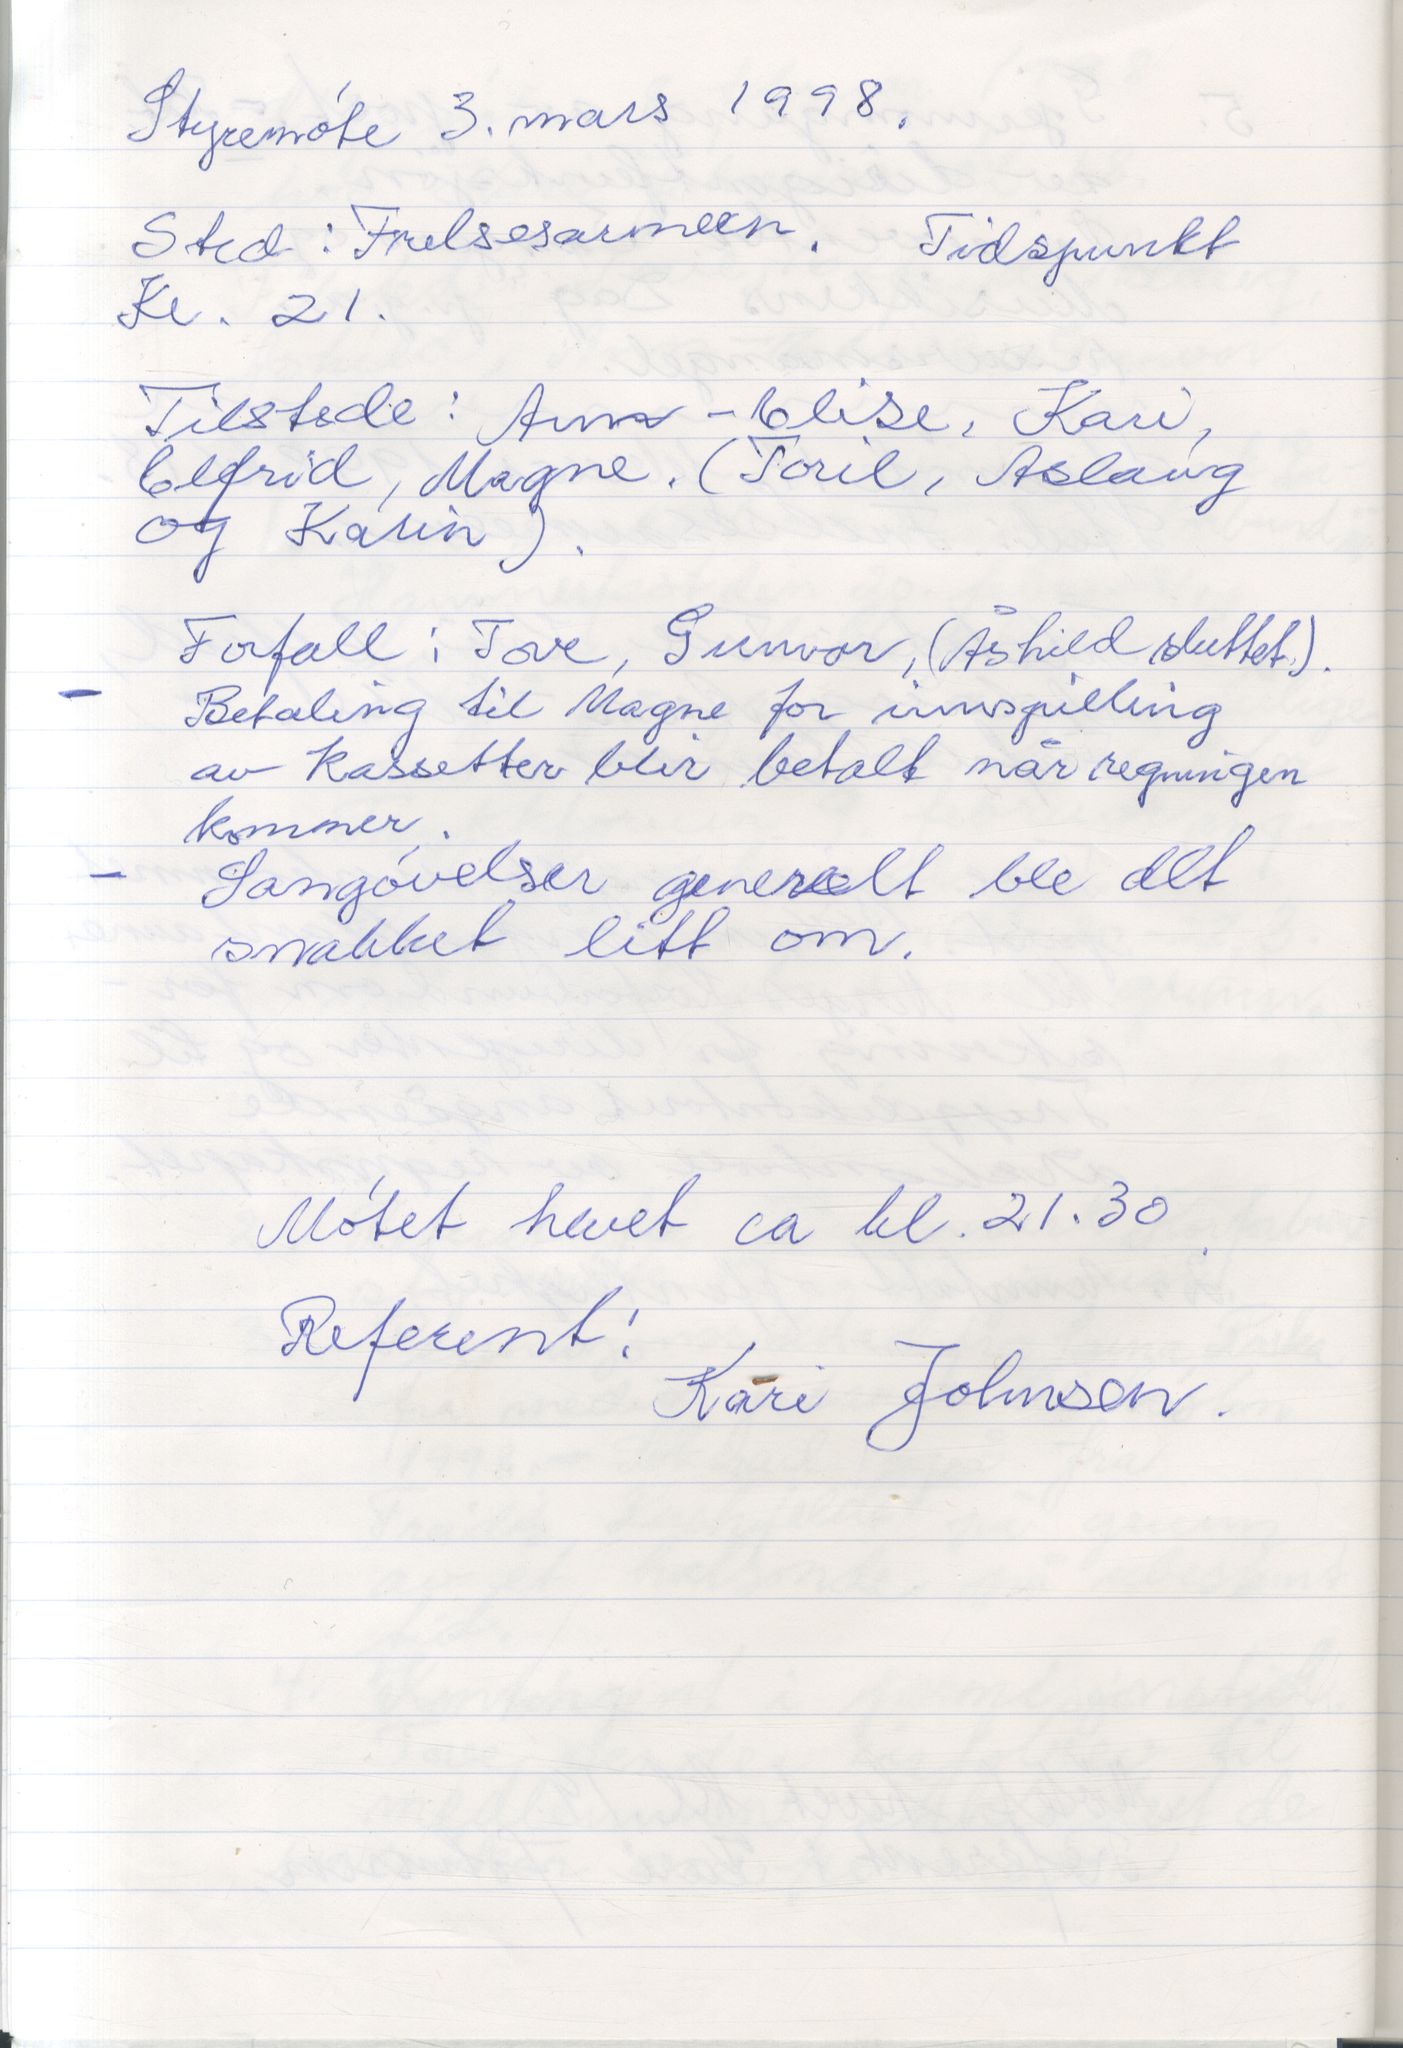 Styremóte 3. mars 1998.
Sted: Frelsesarmeen. Tidspunkt
Kl. 21.
Tilstede: Ann-Elise, Kari,
Elfrid, Magne. (Toril, Aslaug
og Karin).
Forfall: Tove, Gunvor, (Åshild sluttet).
- Betaling til Magne for innspilling
av kassetter blir betalt når regningen
kommer.
- Sangóvelser generelt ble det
snakket litt om.
Mótet hevet ca kl. 21.30.
Referent:
Kari Johnsen.